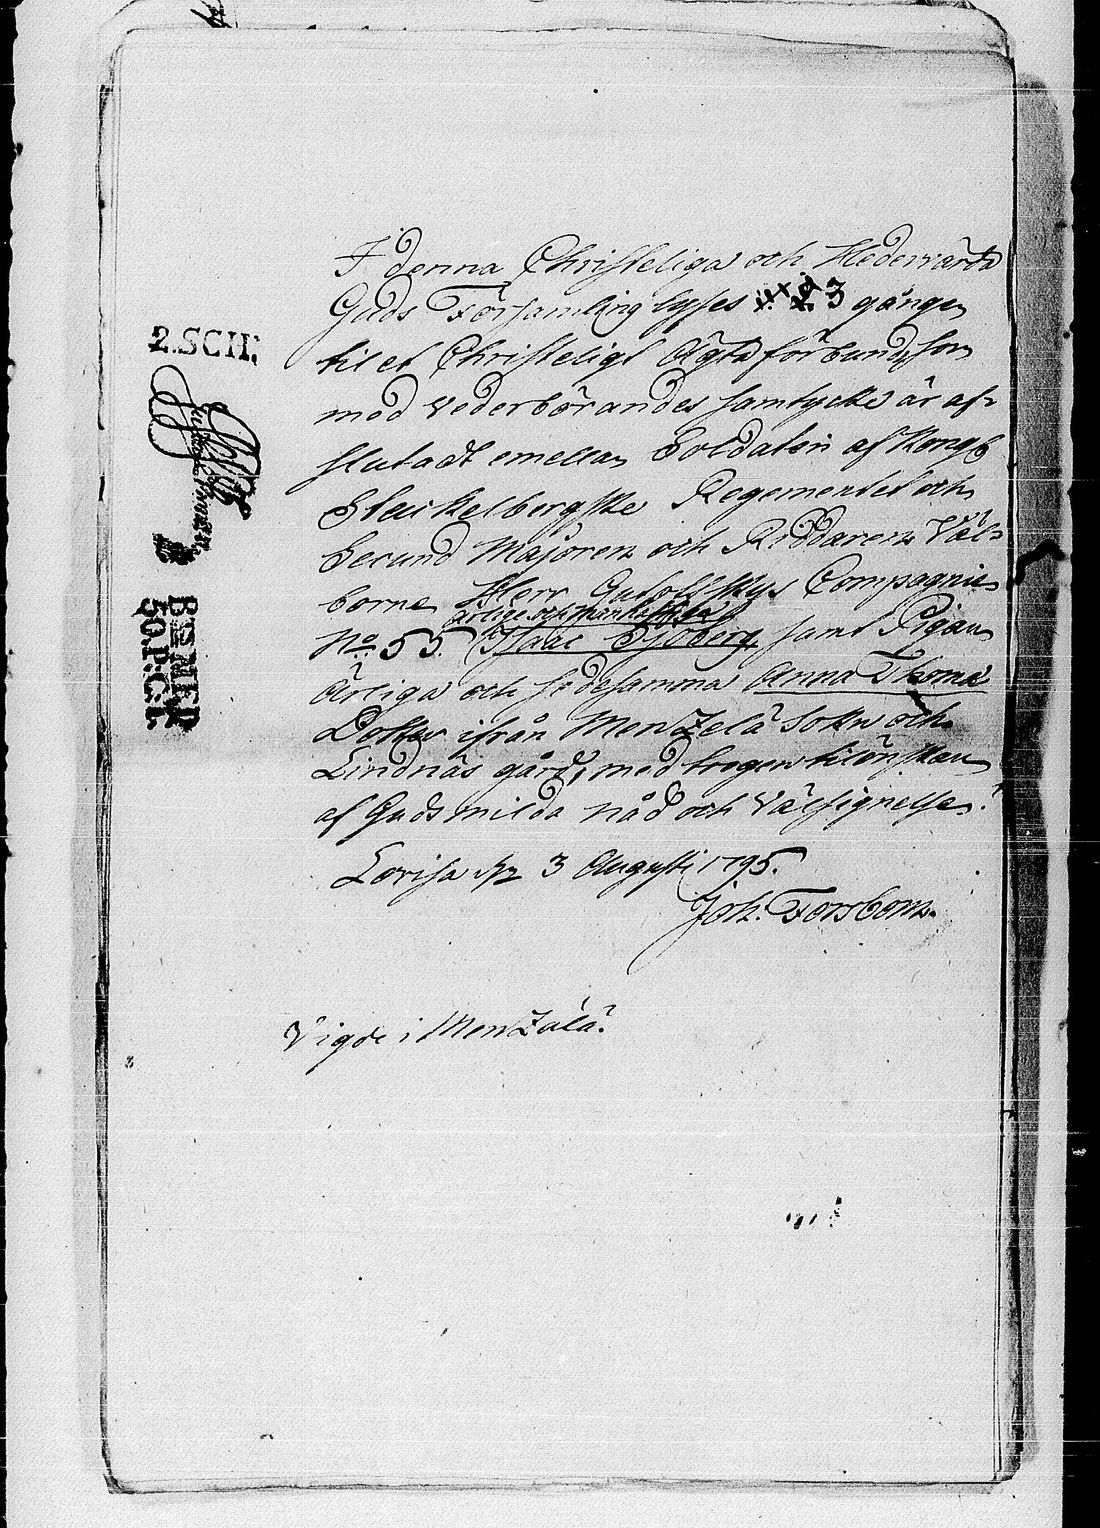 2.SCH:
BISMER
50.P.C:T.
I denna Christeliga och Hedervärda
Guds Församling lyses 3 gången
til et Christeligt Ägta förbund, som
med vederbörandes samtycke är af-
slutadt emellan Soldaten af Kongl
Stackelbergske Regementet och
Secund Majoren och Riddaren Väl-
borne Herr Compagnie
ärlige och Manhaftige
No. 55. Isaac Sjöberg, samt Pigan
Ärliga och sedesamma Anna Thomæ
Dotter ifrån MenZelä Sokn och
Lindnäs gård, med trogen tilönskan
af Guds milda nåd och Välsignelse.
Lovisa 3 Augusti 1795.
Joh. Forsbom.
Vigde i MenZälä.